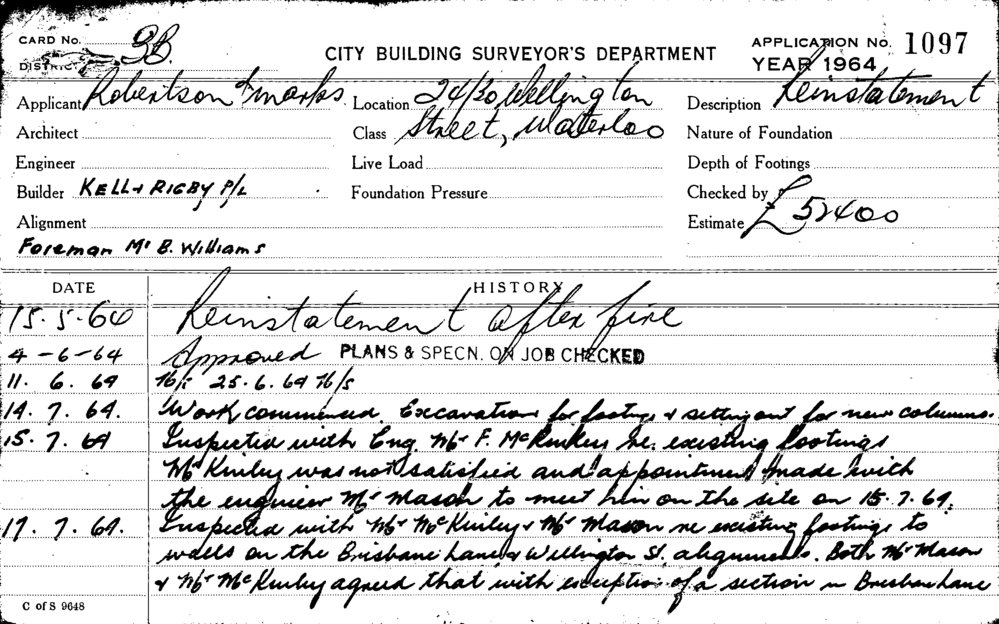 CARD No. 3B.
DISTRICT
CITY BUILDING SURVEYOR'S DEPARTMENT
APPLICATION No. 1097
YEAR 1964
Applicant Robertson & Marks. Location 24/30 Wellington Description Reinstatement
Architect Class Street, Waterloo Nature of Foundation
Engineer Live Load Depth of Footings
Builder KELL & RIGBY P/L Foundation Pressure Checked by
Alignment Estimate £52400
Foreman Mr B. Williams
DATE HISTORY
15.5.64 Reinstatement after fire
4-6-64 Approved PLANS & SPECN. ON JOB CHECKED
11. 6. 64 25.6.64
14. 7. 64. Work commenced. Excavation for footings & setting out for new columns.
15. 7. 64 Inspected with Eng. Mr F. McKinley re. existing footings
McKinley was not satisfied and appointment made with
the engineer Mr Mason to meet him on the site on 15.7.64.
17. 7. 64. Inspected with Mr McKinley & Mr Mason re existing footings to
walls on the Brisbane Lane & Wellington St. alignments. Both Mr Mason
& Mr McKinley agreed that with exception of a section in Brisbane Lane
C of S 9648